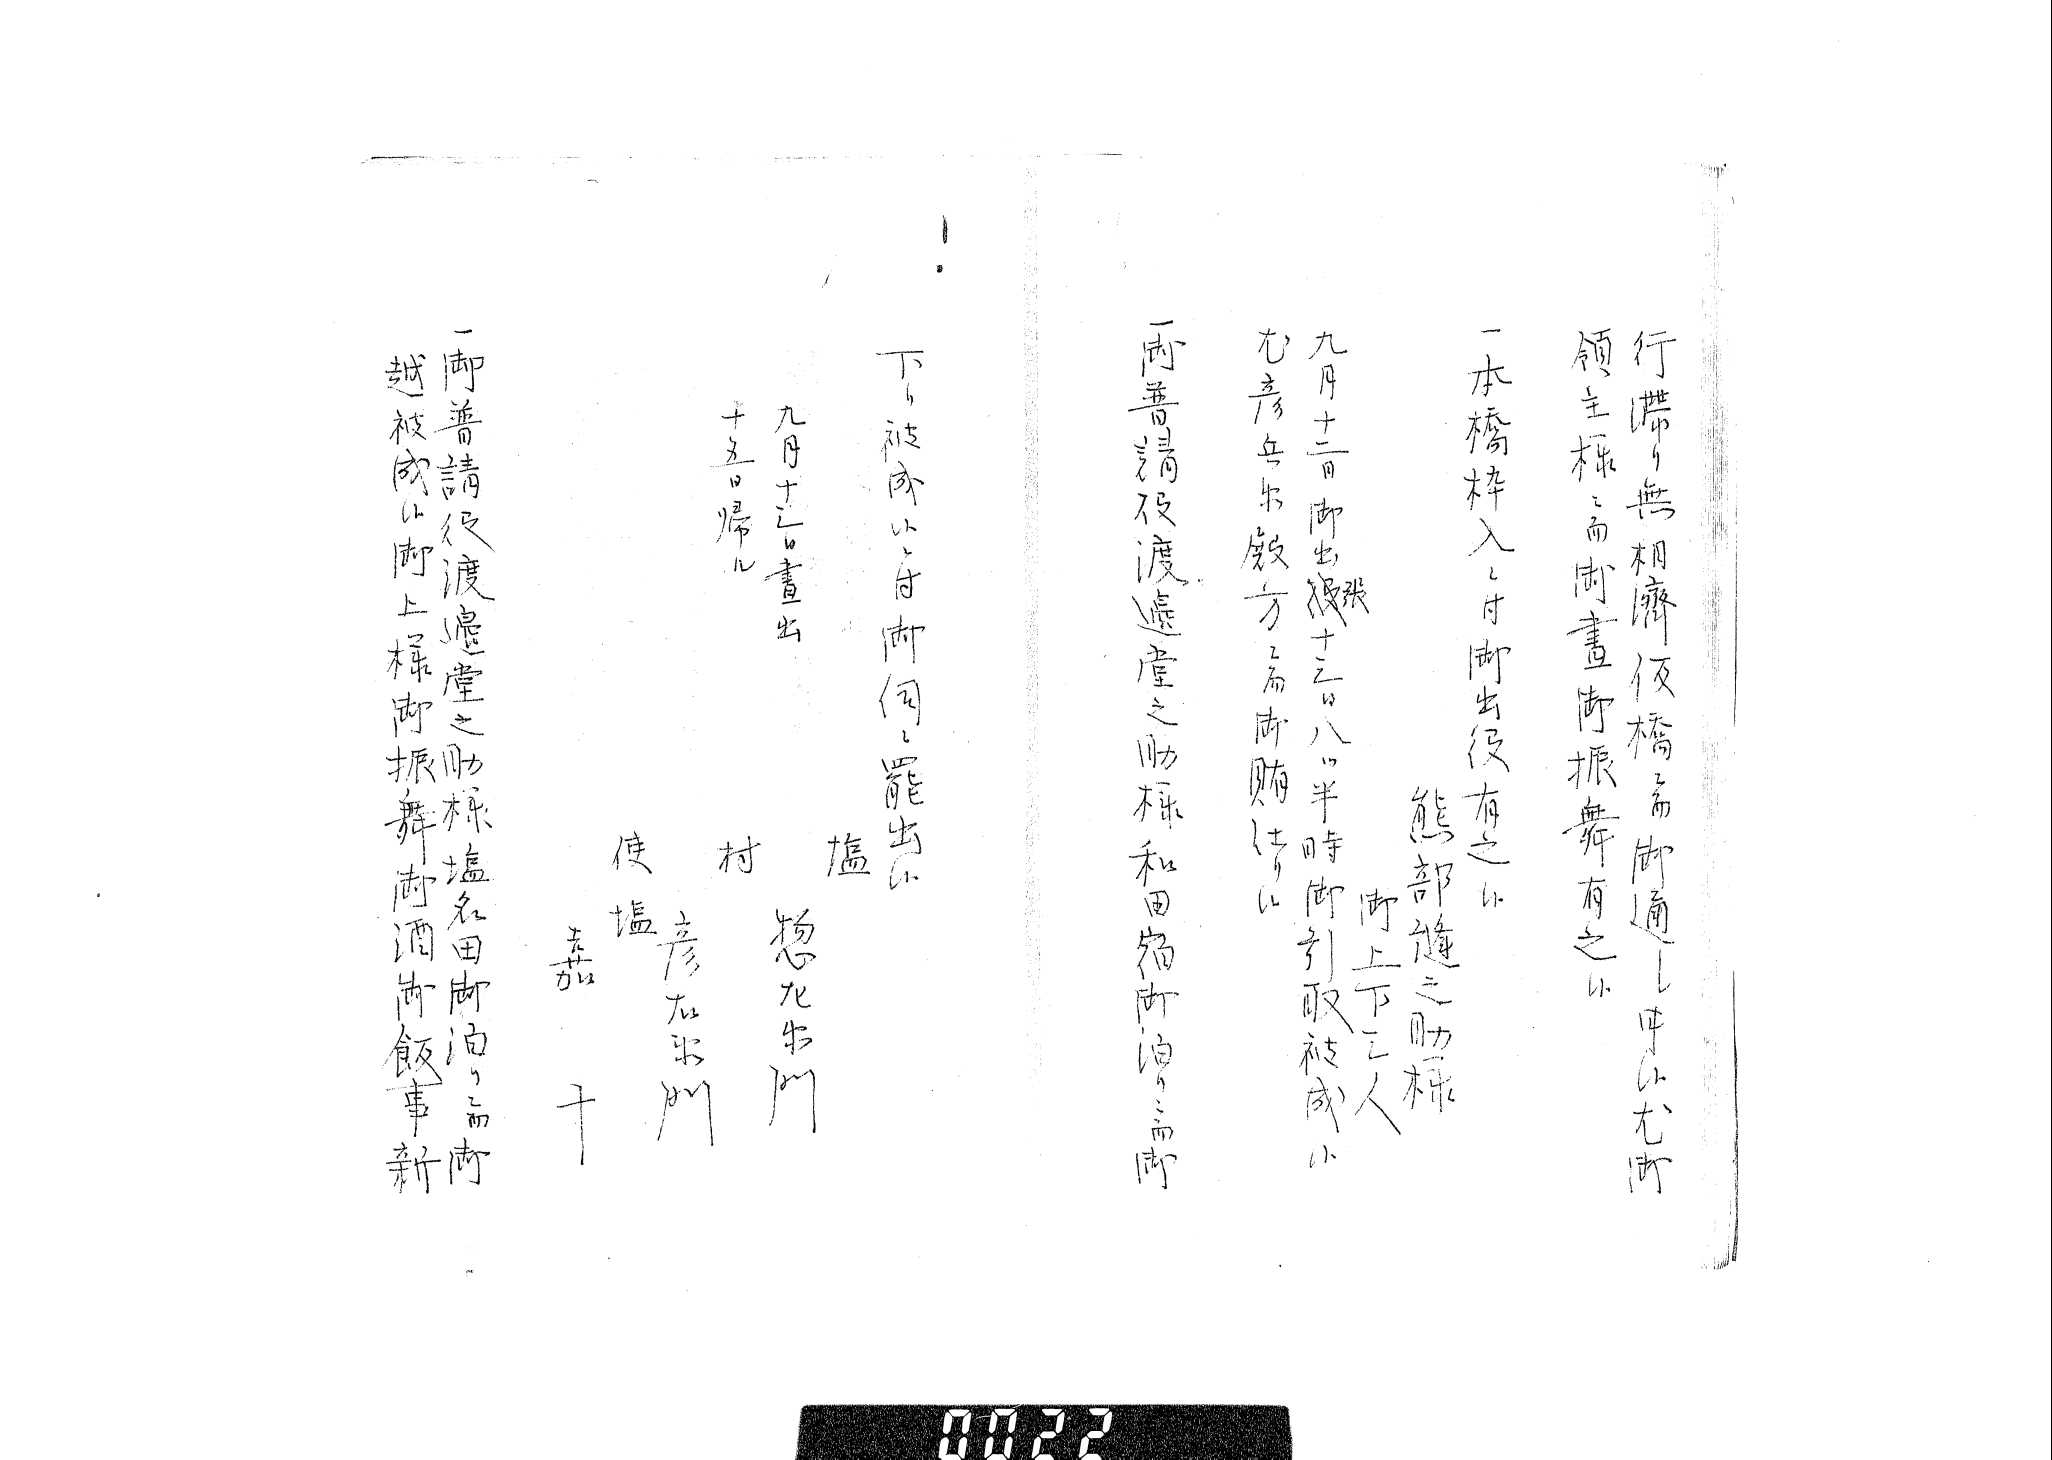 行滞り無相濟仮橋ニ而御通し申候尤御
領主様ニ而御晝御振舞有之候
一本橋枠入ニ付御出役有之候
熊部縫之助様
御上下三人
九月十二日御出張十三日八ツ半時御引取被成候
尤彦兵衛殿方ニ而御賄仕り候
一御普請役渡邉堂之助様和田宿御泊りニ而御
下り被成候ニ付御伺ニ罷出候
塩
惣左衛門
九月十三日晝出
村
彦右衛門
十五日帰ル
使塩
嘉十
一御普請役渡邉堂之助様塩名田御泊りニ而御
越被成候御上様御振舞御酒御飯事新
0022